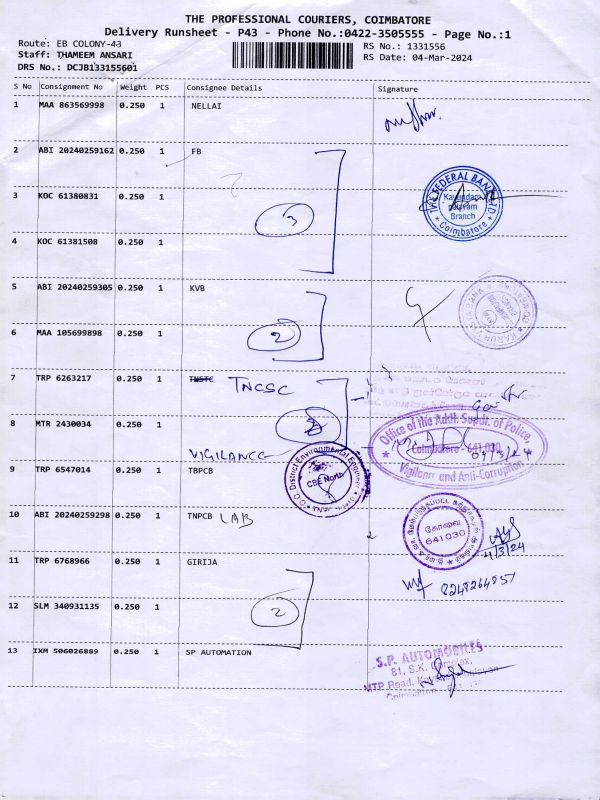 THE PROFESSIONAL COURIERS, COIMBATORE
Delivery Runsheet - P43 - Phone No.:0422-3505555 - Page No.:1
Route: EB COLONY-43
RS No.: 1331556
Staff: THAMEEM ANSARI
RS Date: 04-Mar-2024
DRS No.: DCJB133155601
S No Consignment No Weight PCS Consignee Details Signature
1 MAA 863569998 0.250 1 NELLAI
2 ABI 20240259162 0.250 1 FB
THE FEDERAL BANK LTD
Branch
Coimbatore
3 KOC 61380831 0.250 1
3
4 KOC 61381508 0.250 1
5 ABI 20240259305 0.250 1 KVB
6 MAA 105699898 0.250 1
2
7 TRP 6263217 0.250 1 TNSTC TNCSC
8 MTR 2430034 0.250 1
VIGILANCE
Office of the Addl. Supdt. of Police,
Coimbatore - 641 030
Vigilance and Anti-Corruption
9 TRP 6547014 0.250 1 TBPCB
District Environmental Engineer
CBE North
10 ABI 20240259298 0.250 1 TNPCB LAB
கோவை
641030
4/3/24
11 TRP 6768966 0.250 1 GIRIJA
12 SLM 340931135 0.250 1
2
13 IXM 506026889 0.250 1 SP AUTOMATION
S.P. AUTOMOBILES
81, S.K. Complex,
MTP Road,